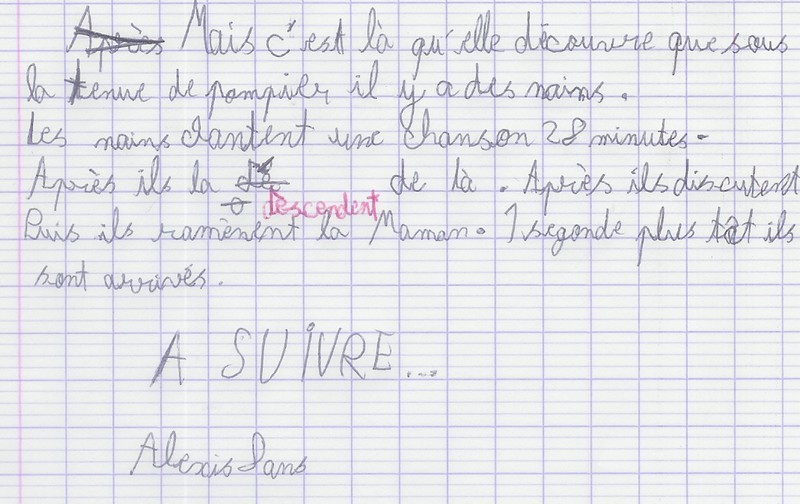 Après Mais c'est là qu'elle découvre que sous
la tenue de pompier il y a des nains.
Les nains chantent une chanson 28 minutes.
Après ils la de là. Après ils discutent
descendent
Puis ils ramènent la Maman. 1 segonde plus tot ils
sont arrivés.
A SUIVRE...
Alexis